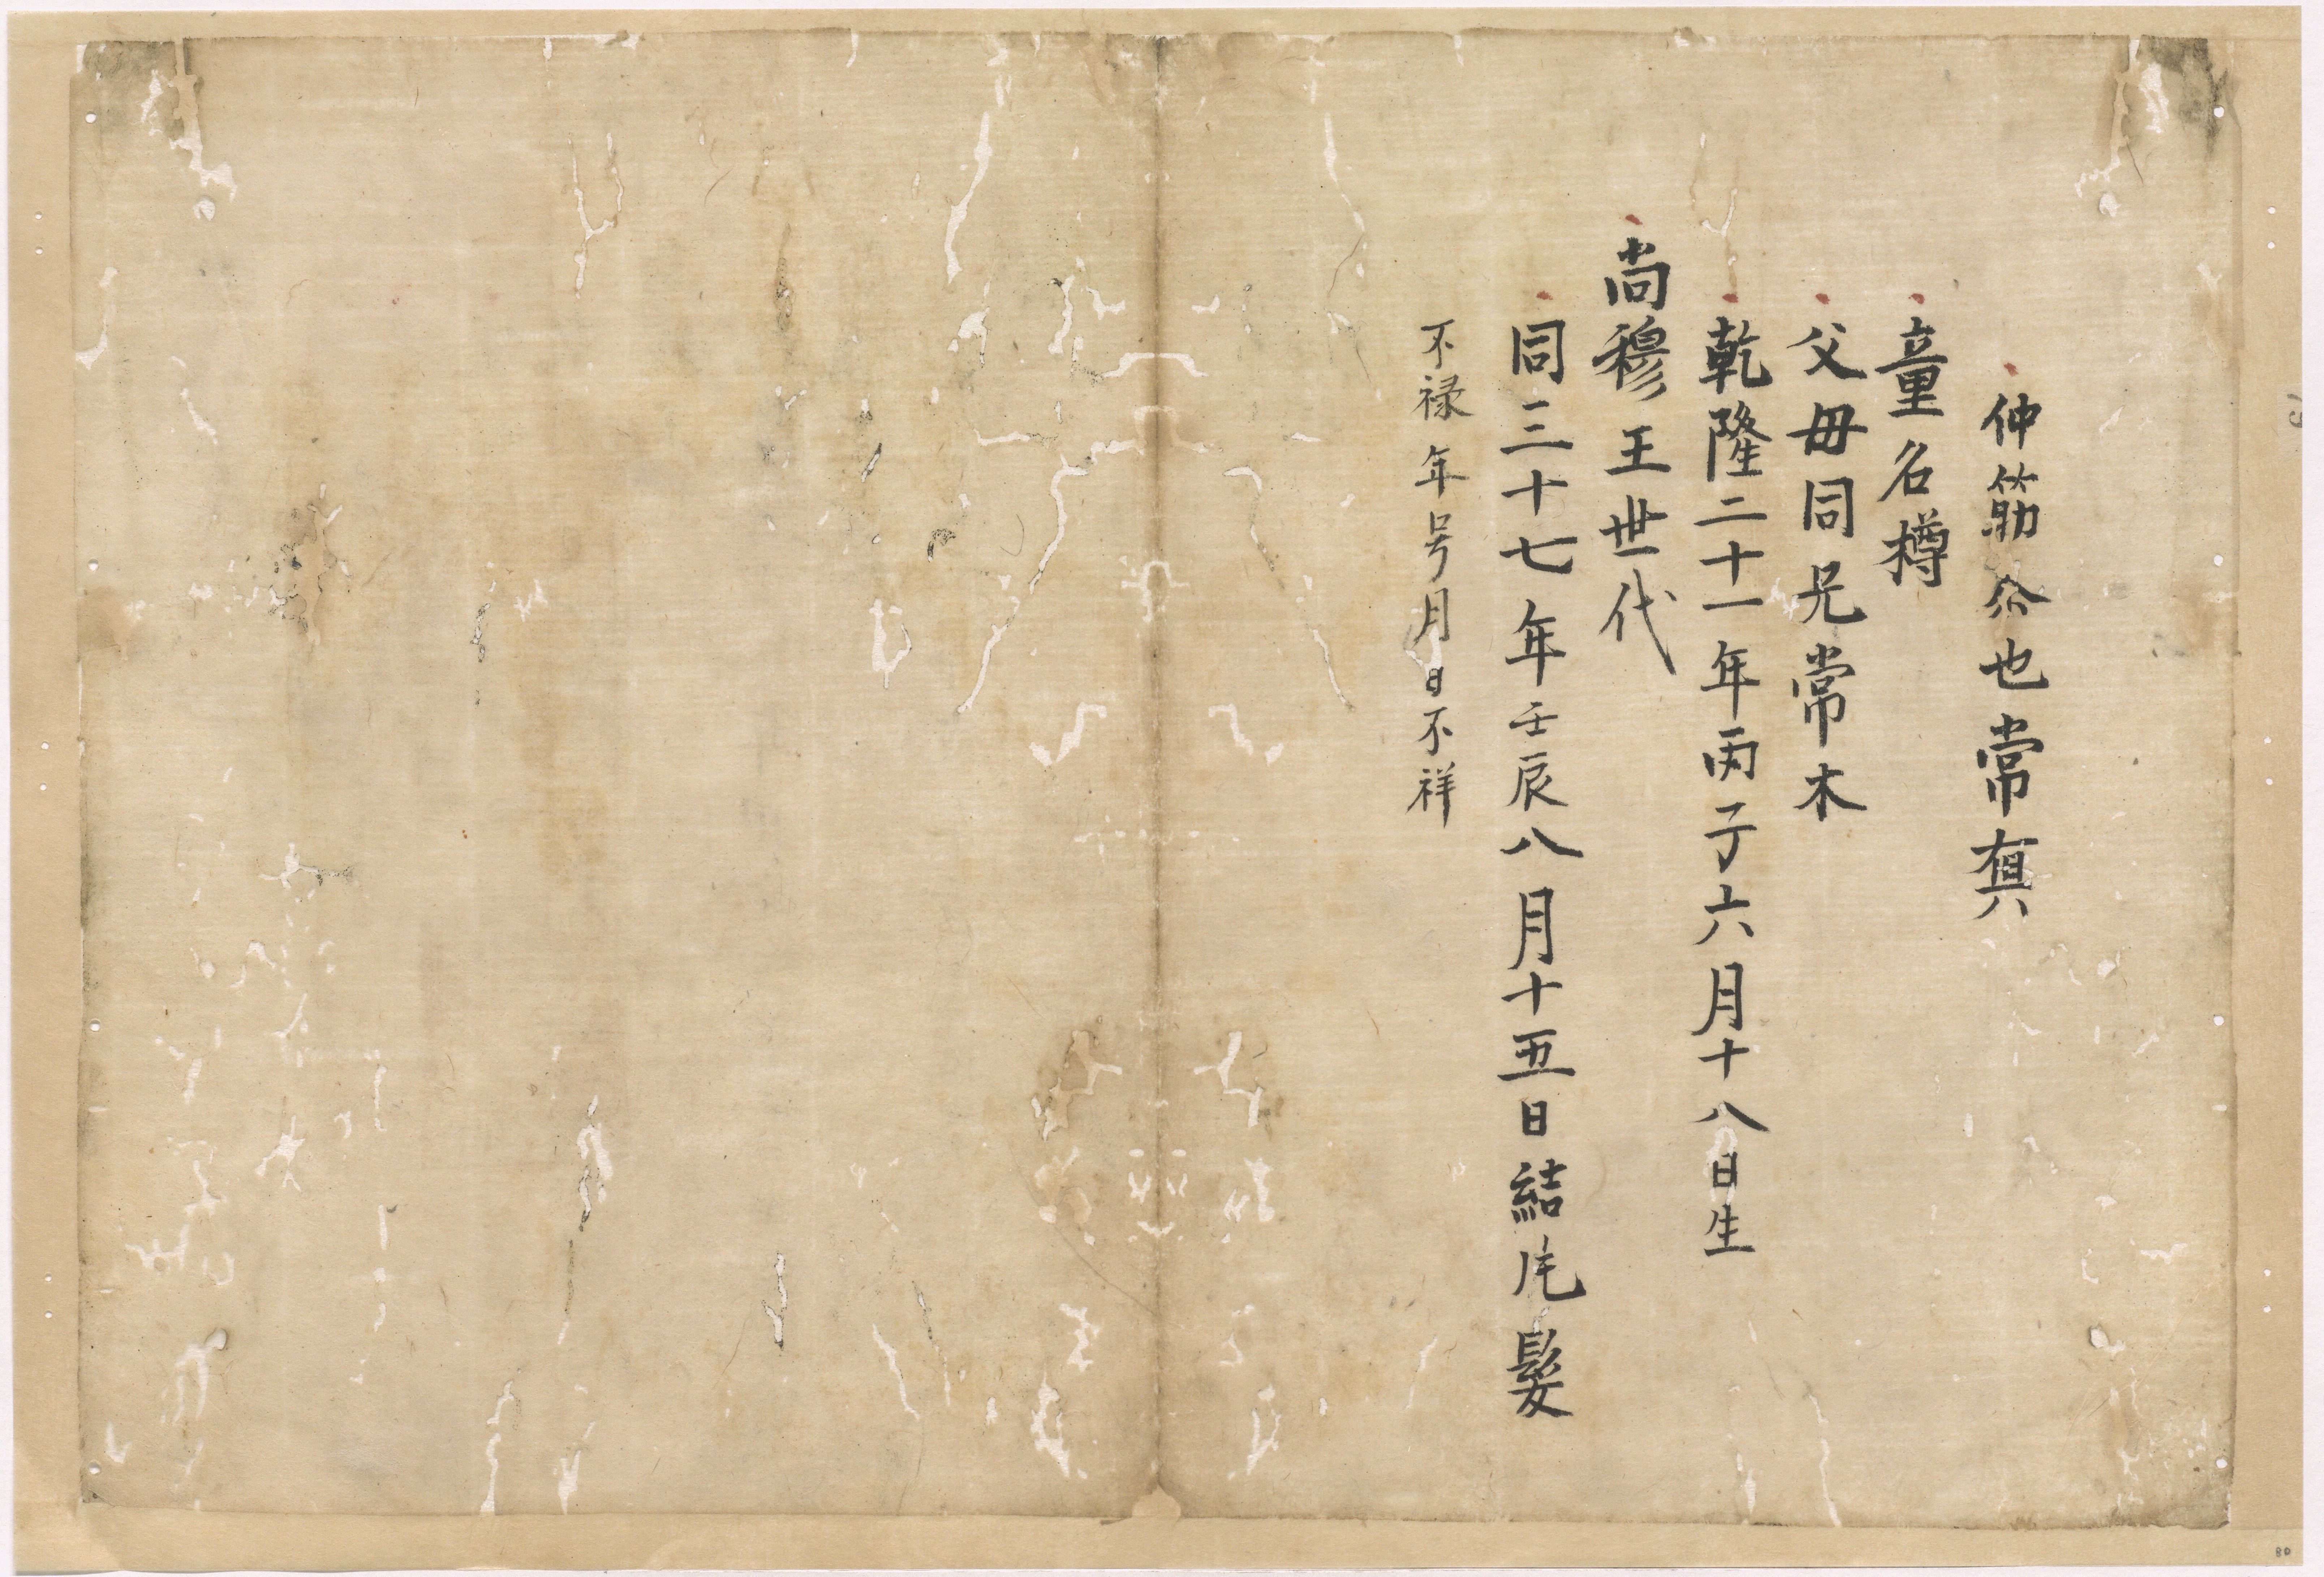 仲筋尒也常真
童名樽
父毋同兄常木
乾隆二十一年丙子六月十八日生
尚穆王世代
同三十七年壬辰八月十五日結髦髮
不禄年号月日不祥
80